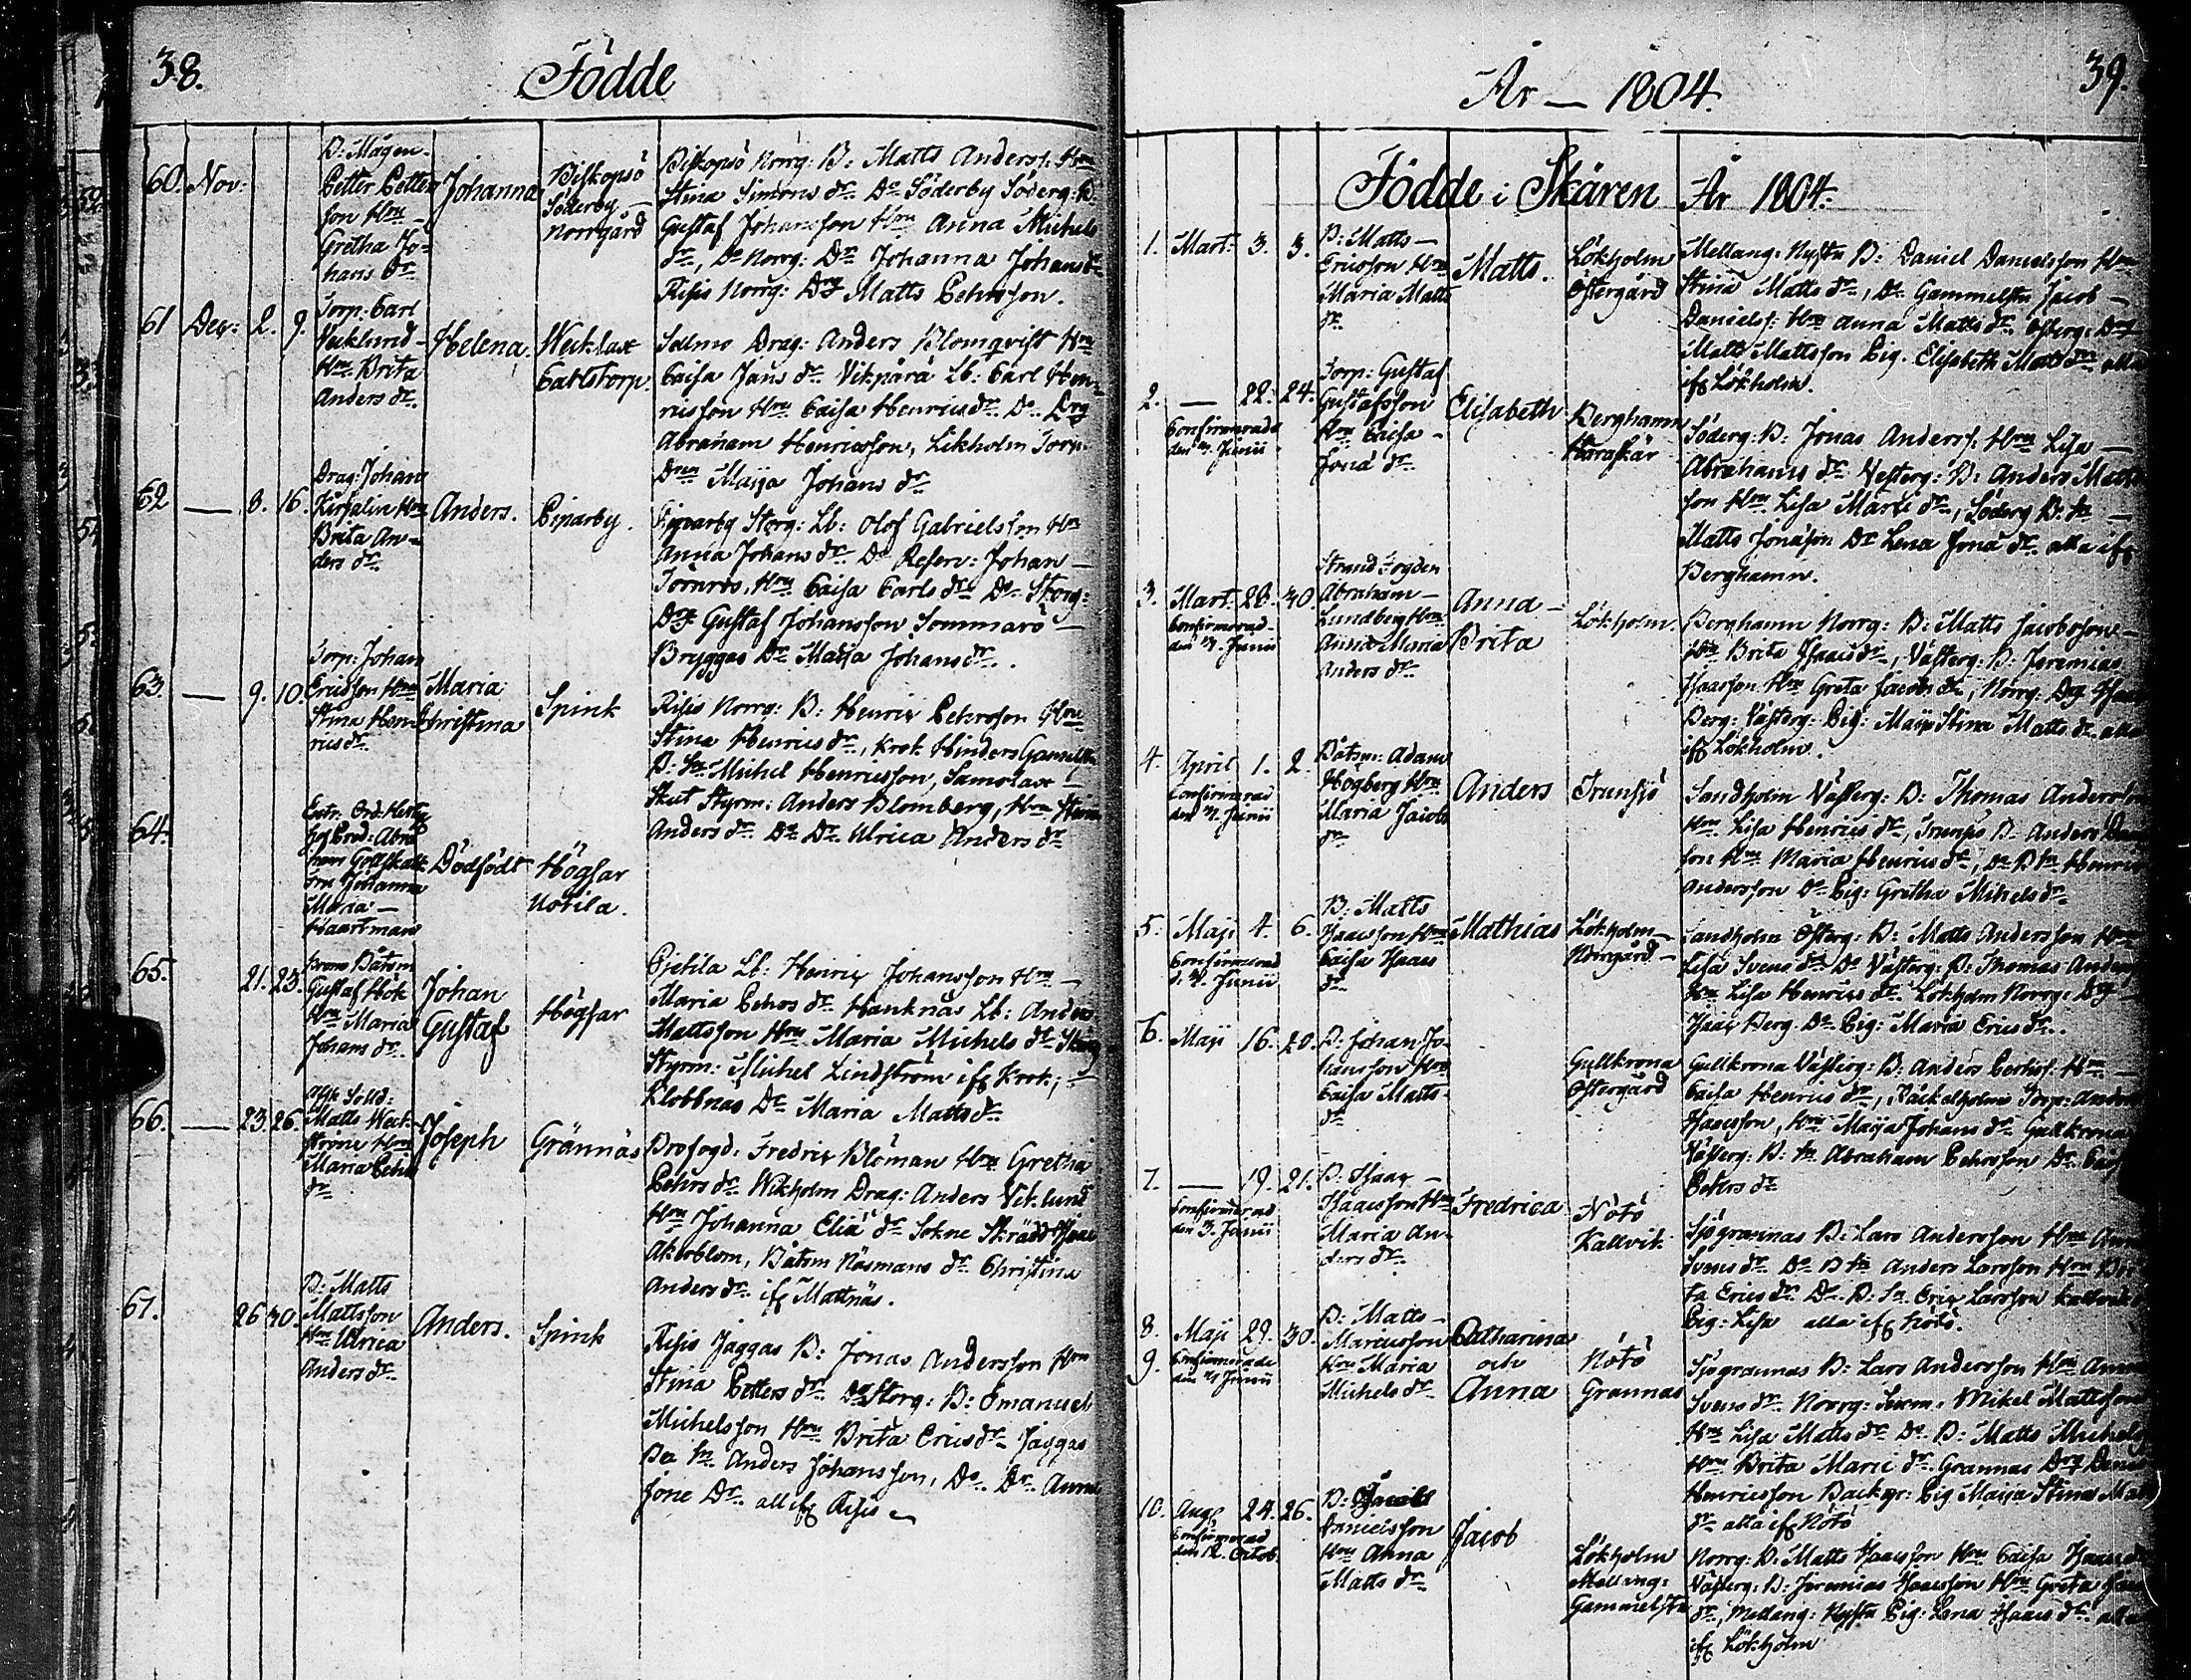 38.
Födde
60. Nov:
B: Mågen
Petter Petters
son Hru
Gretha Jo-
hans dr
Johanna
Biskopsö
Söderby
Norrgård
Biskopsö Norrg: B: Matts Anderss: Hru
Stina Simons dr Do Söderby Söderg: B:
Gustaf Johansson Hru Anna Michels
dr, Do Norrg: Dr Johanna Johans dr
Risis Norrg: Drg Matts Pehrsson.
61 Dec: 2. 9.
Torp: Carl
Hru Brita
Anders dr
Helena.
Carlstorp.
Drag: Anders Blomqvist Hru
Caisa Jans dr Vikpårä Lb: Carl Hen-
ricsson Hru Caisa Henrics dr Do Drg
Abraham Henricsson, Likholm Torp:
Maija Johans dr
62 — 8. 16.
Drag: Johan
Hru
Brita An-
ders dr
Anders.
Piparby.
Piparby Storg: Lb: Olof Gabrielsson Hru
Anna Johans dr Do Reserv: Johan
Törnros, Hru Caisa Carls dr Do Storg:
Drg Gustaf Johansson Sommarö
Brygges Dr Maija Johans dr.
63. — 9. 10.
Torp: Johan
Ericsson Hru
Stina Hen-
rics dr
Maria
Christina
Spink
Risis Norrg: B: Henric Pehrsson Hru
Stina Henrics dr, Krok Hinders Gammelst
B: Sn Michel Henricsson, Samslax
Skut Styrm: Anders Blomberg, Hru Stina
Anders dr Do Dr Ulrica Anders dr
64.
Johanna
Maria
Haartman
Dödfödt
Högsar
Uotila.
65. 21. 23.
Båtsm
Gustaf Hök
Hru Maria
Johans dr
Johan
Gustaf
Högsar
Pjetila Lb: Henric Johansson Hru
Maria Pehrs dr Hanknäs Lb: Anders
Mattsson Hru Maria Michels dr
Styrm: Michel Lindström if Krok;
Klobbnas Dr Maria Matts dr
66. — 23. 26.
Sold:
Matts Weck-
ström Hru
Maria Pehrs
dr
Joseph
Grännäs
Profogd: Fredric Blöman Hru Gretha
Pehrs dr Wikholm Drag: Anders Veklund
Hru Johanna Eliæ dr Sokne Skrädd: Isaac
Åkerblom, Båtsm Näsmans dr Christina
Anders dr if Mattnäs.
67. 26 30.
B: Matts
Mattsson
Hru Ulrica
Anders dr
Anders.
Spink
Risis Jaggas B: Jonas Andersson Hru
Stina Petters dr Do Storg: B: Emanuel
Michelsson Hru Brita Erics dr Jaggas
Anders Johansson, Do Dr Anna
Jone Dr all if Risis
39.
År — 1804.
Födde i Skären År 1804.
1. Mart: 3. 3.
B: Matts
Ericsson Hru
Maria Matts
dr
Matts.
Lökholm
Östergård
Mellang: Nysta B: Daniel Danielsson Hru
Stina Matts dr, Do Gammelsta Jacob
Daniels: Hru Anna Matts dr Österg: Drg
Matts Mattsson Pig. Elisabeth Matts dr alla
if Lökholm.
2. — 22. 24.
Confirmerade
den Junii
Torp: Gustaf
Gustafsson
Hru Caisa
Jona dr
Elisabeth
Berghamn
Haraskär
Söderg: B: Jonas Anderss: Hru Lisa
Abrahams dr Vesterg: B: Anders Matts
son Hru Lisa Marti dr, Söderg B: Sn
Matts Jonason Dr Lena Jona dr alla if
Berghamn.
3. Mart. 28. 30.
Confirmerad
den Junii
Strand Fogden
Abraham
Lundberg Hru
Anna Maria
Anders dr
Anna
Brita
Lökholm.
Berghamn Norrg: B: Matts Jacobsson
Hru Brita Isaacs dr, Västerg: B: Jeremias
Isacsson Hru Greta Jacobs dr, Norrg: Drg Isaac
Berg: Västerg: Pig: Maija Stina Matts dr alla
if Lökholm.
4. April 1. 2.
Confirmerad
den Junii
Båtsm: Adam
Högberg Hru
Maria Jacobs
dr
Anders
Trunsjö
Sandholm Västerg: B: Thomas Andersson
Hru Lisa Henrics dr, Trunsö B: Anders
son Hru Maria Henrics dr, Do B Sn Henric
Andersson Do Pig: Gretha Mihels dr
5. Maji 4. 6.
Confirmerad
d. Junii
B: Matts
Isacsson Hru
Caisa Isaacs
dr
Mathias
Lökholm
Norrgård
Sandholm Österg: B: Matts Andersson Hru
Lisa Svens dr Do Västerg: B: Thomas Anders
Hru Lisa Henrics dr Lökholm Norrg: Drg
Isaac Berg Do Pig: Maria Erics dr.
6. Maji 16. 20.
B: Johan Jo-
hansson Hru
Caisa Matts
dr
Gullkrona
Östergård
Gullkrona Västerg: B: Anders Pehrs: Hru
Caisa Henrics dr, Torp: Anders
Isacsson, Hru Maija Johans dr Gullkrona
Västerg: B: Sn Abraham Pehrsson Dr
Pehrs dr
7. — 19. 21.
Confirmerad
den Junii
B: Isaac
Isaacsson Hru
Maria An-
ders dr
Fredrica
Nötö
Kallvik
Sjögrannas B: Lars Andersson Hru Anna
Svens dr Do B Sn Anders Larsson Hru Bri
ta Erics dr Do B: Sn Eric Larsson Kallvik
Pig: Lisa alla if Nötö.
8. Maji 29. 30.
9. Confirmerade
den Junii
B: Matts
Marcusson
Hru Maria
Michels dr
Catharina
och
Anna
Nötö
Grannas
Sjögrannas B: Lars Andersson Hru Anna
Svens dr Norrg: Mikel Mattsson
Hru Lisa Matts dr Do B: Matts Michels
Hru Brita Marie dr Grannas Drg
Henricsson Backgr: Pig Maija Stina
dr alla if Nötö
10. Aug. 24. 26.
Confirmerad
den 12. Octob.
B: Jacob
Danielsson
Hru Anna
Matts dr
Jacob
Lökholm
Mellang:
Gammelsta
Norrg: B: Matts Isacsson Hru Caisa Isaacs dr
Västerg: B: Jeremias Isacsson Hru Greta
dr, Mellang: Nysta Pig: Lena Isaacs dr
if Lökholm